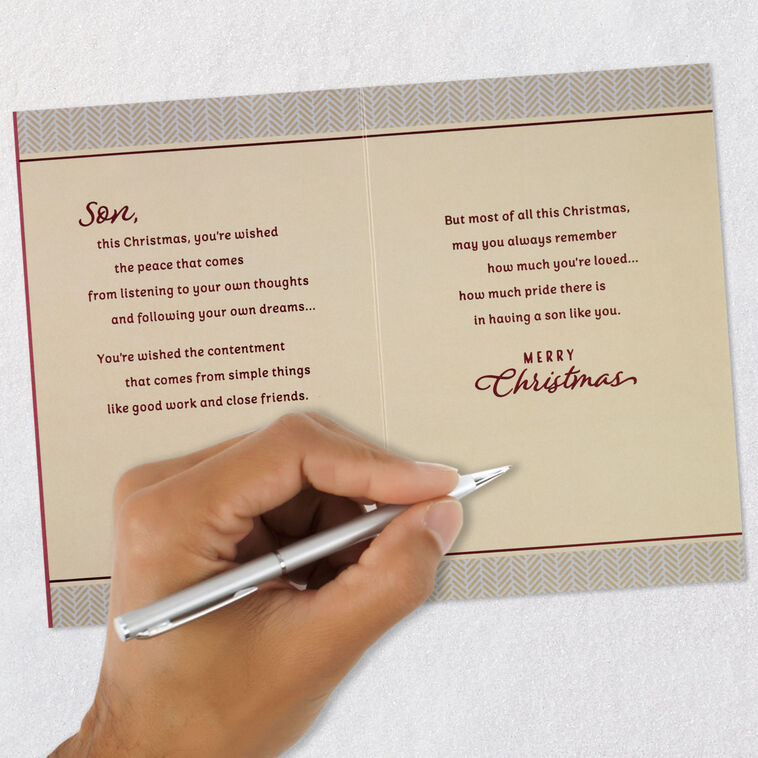 Son,
this Christmas, you're wished
the peace that comes
from listening to your own thoughts
and following your own dreams...
You're wished the contentment
that comes from simple things
like good work and close friends.
But most of all this Christmas,
may you always remember
how much you're loved...
how much pride there is
in having a son like you.
MERRY
Christmas